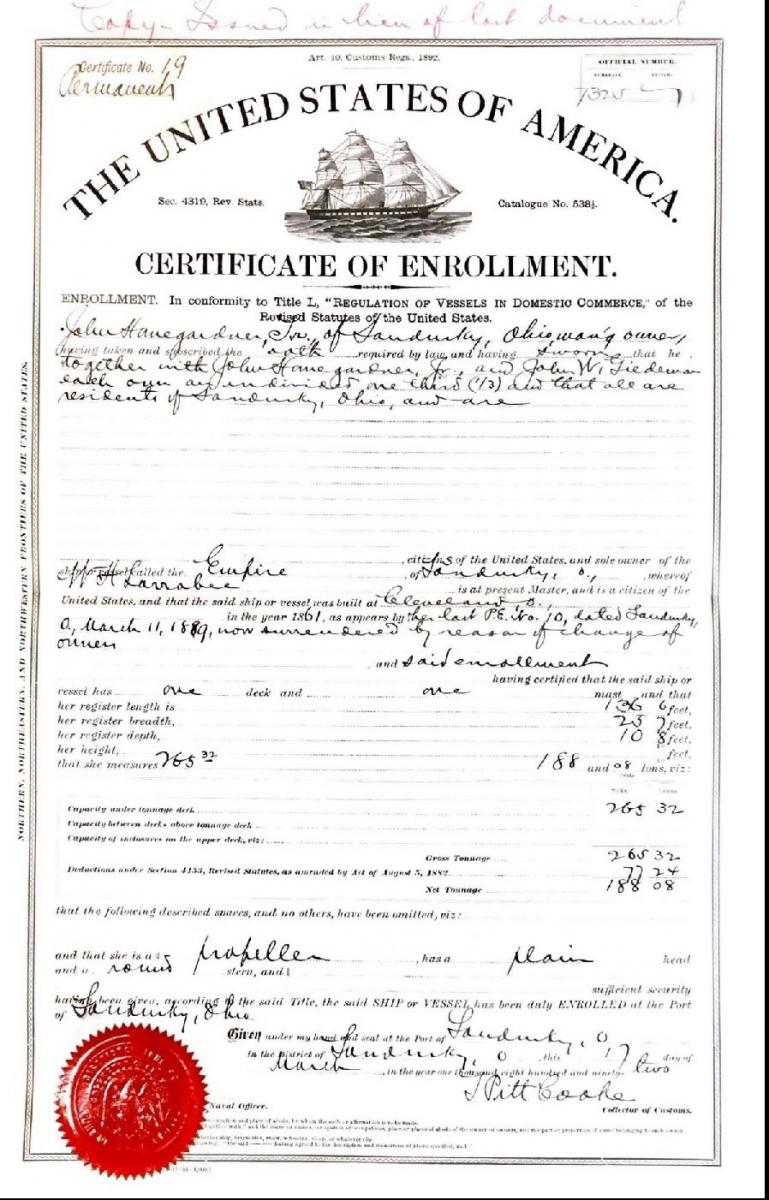 Copy - Issued in lieu of lost document
Art. 40, Customs Regs., 1892.
Certificate No. 19
Permanent
OFFICIAL NUMBER.
NUMERALS. LETTERS.
7325
THE UNITED STATES OF AMERICA.
Sec. 4319, Rev. Stats.
Catalogue No. 538½.
CERTIFICATE OF ENROLLMENT.
ENROLLMENT. In conformity to Title L, "REGULATION OF VESSELS IN DOMESTIC COMMERCE," of the
Revised Statutes of the United States.
John Hanegardner, Sr., of Sandusky, Ohio, man'g owner,
having taken and subscribed the oath required by law, and having sworn that he
together with John Hanegardner, Jr., and John W. Tiedeman
each own an undivided one third (1/3) and that all are
residents of Sandusky, Ohio, and are
citizens of the United States, and sole owner of the
ship or vessel called the Empire, of Sandusky, O., whereof
W H Larrabee is at present Master, and is a citizen of the
United States, and that the said ship or vessel was built at Cleveland O.,
in the year 1861, as appears by her last P.E. No. 10, dated Sandusky,
O, March 11, 1889, now surrendered by reason of change of
owners
and said enrollment
having certified that the said ship or
vessel has one deck and one mast and that
her register length is 136 6 feet,
her register breadth, 25 7 feet,
her register depth, 10 8 feet,
her height, feet,
that she measures 265 32 188 and 08 tons, viz:
TONS.
Capacity under tonnage deck 265 32
Capacity between decks above tonnage deck
Capacity of inclosures on the upper deck, viz:
Gross Tonnage 265 32
Deductions under Section 4153, Revised Statutes, as amended by Act of August 5, 1882 77 24
Net Tonnage 188 08
that the following described spaces, and no others, have been omitted, viz:
and that she is a propeller, has a plain head
and a round stern, and
sufficient security
having been given, according to the said Title, the said SHIP or VESSEL has been duly ENROLLED at the Port
of Sandusky, Ohio.
Given under my hand and seal at the Port of Sandusky, O
in the district of Sandusky, O this 17 day of
March in the year one thousand eight hundred and ninety two
J Pitt Cooke
Naval Officer.
Collector of Customs.
NORTHERN, NORTHEASTERN, AND NORTHWESTERN FRONTIERS OF THE UNITED STATES.